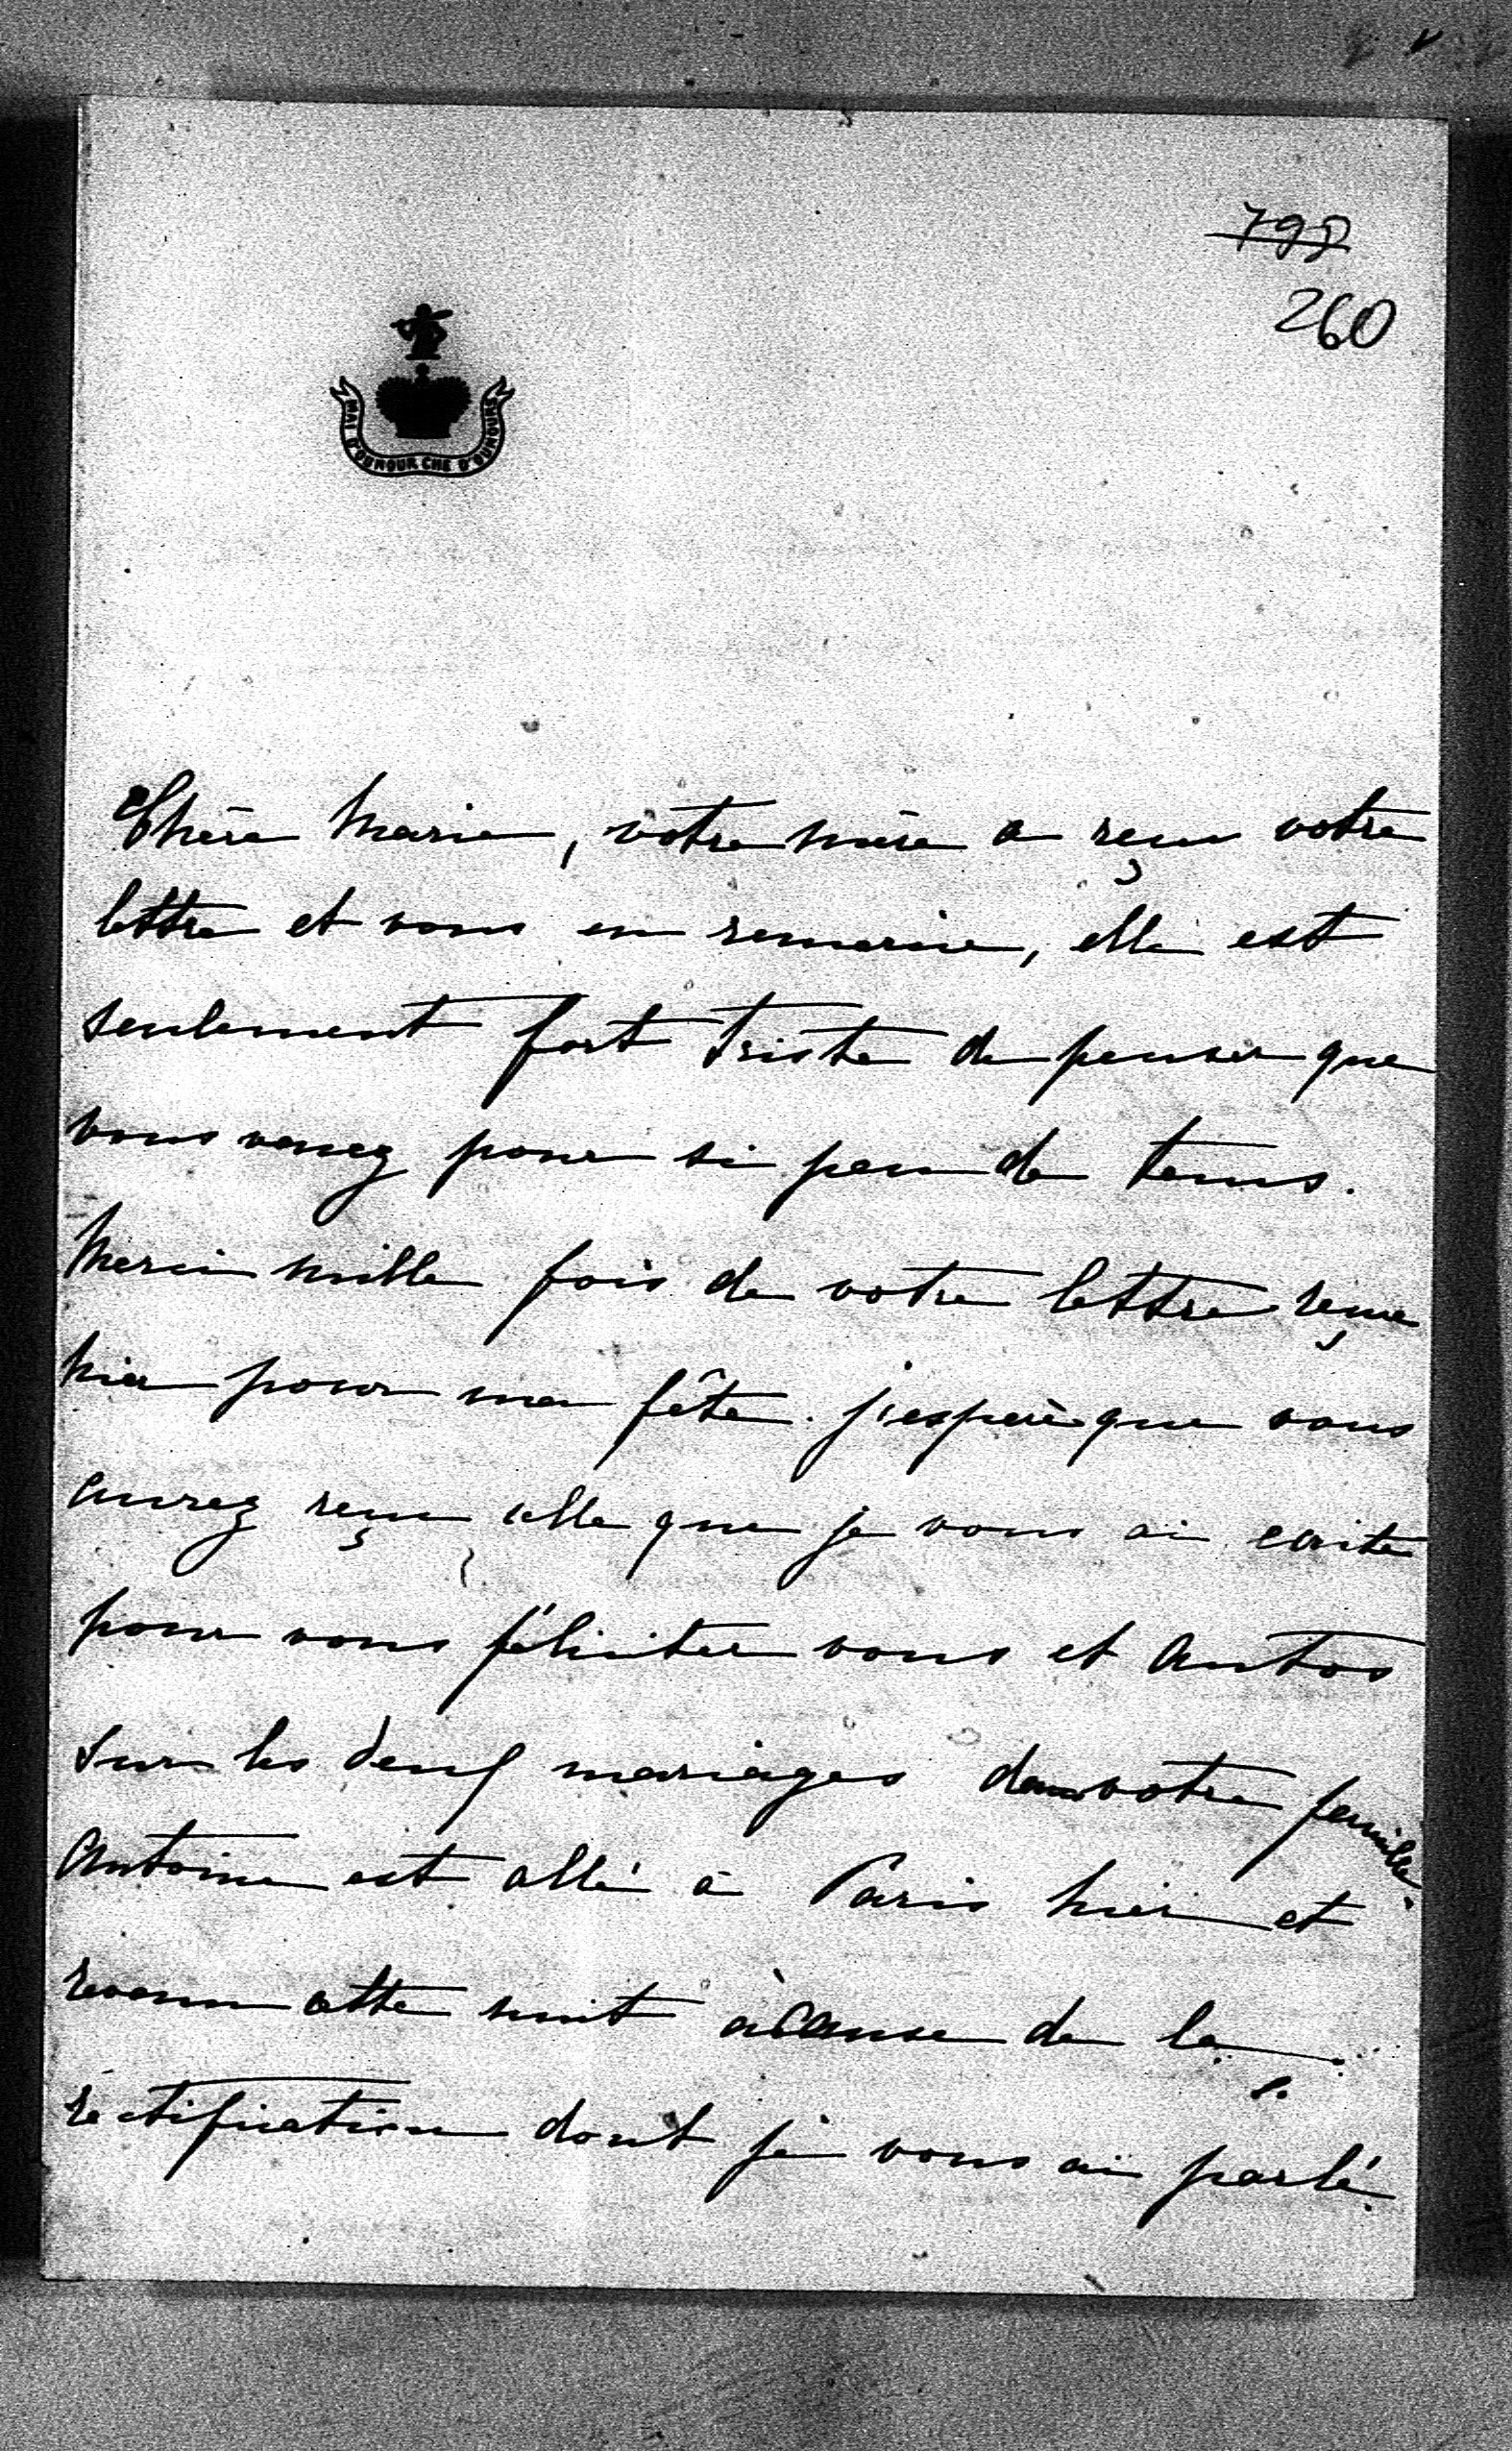 798
260
MAI D'OUNOUR CHE D'OUNOURS
Chère Marie, votre mère a reçu votre
lettre et vous en remercie, elle est
seulement fort triste de penser que
vous venez pour si peu de tems.
Merci mille fois de votre lettre reçue
hier pour ma fête. j'espère que vous
aurez reçu celle que je vous ai ecrite
pour vous féliciter vous et Antos
sur les deux mariages dans votre famille.
Antoine est allé à Paris hier et
revenu cette nuit à cause de la
rectification dont je vous ai parlé.